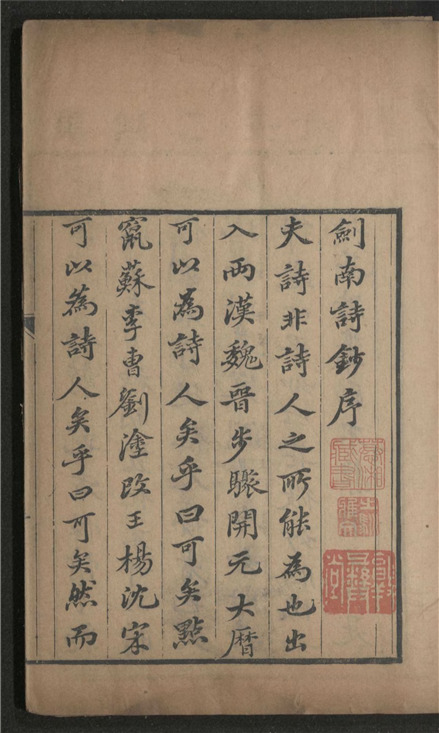 劍南詩鈔序
夫詩非詩人之所能為也出
入兩漢魏晉步驟開元大曆
可以為詩人矣乎曰可矣點
竄蘇李曹劉塗改王楊沈宋
可以為詩人矣乎曰可矣然而